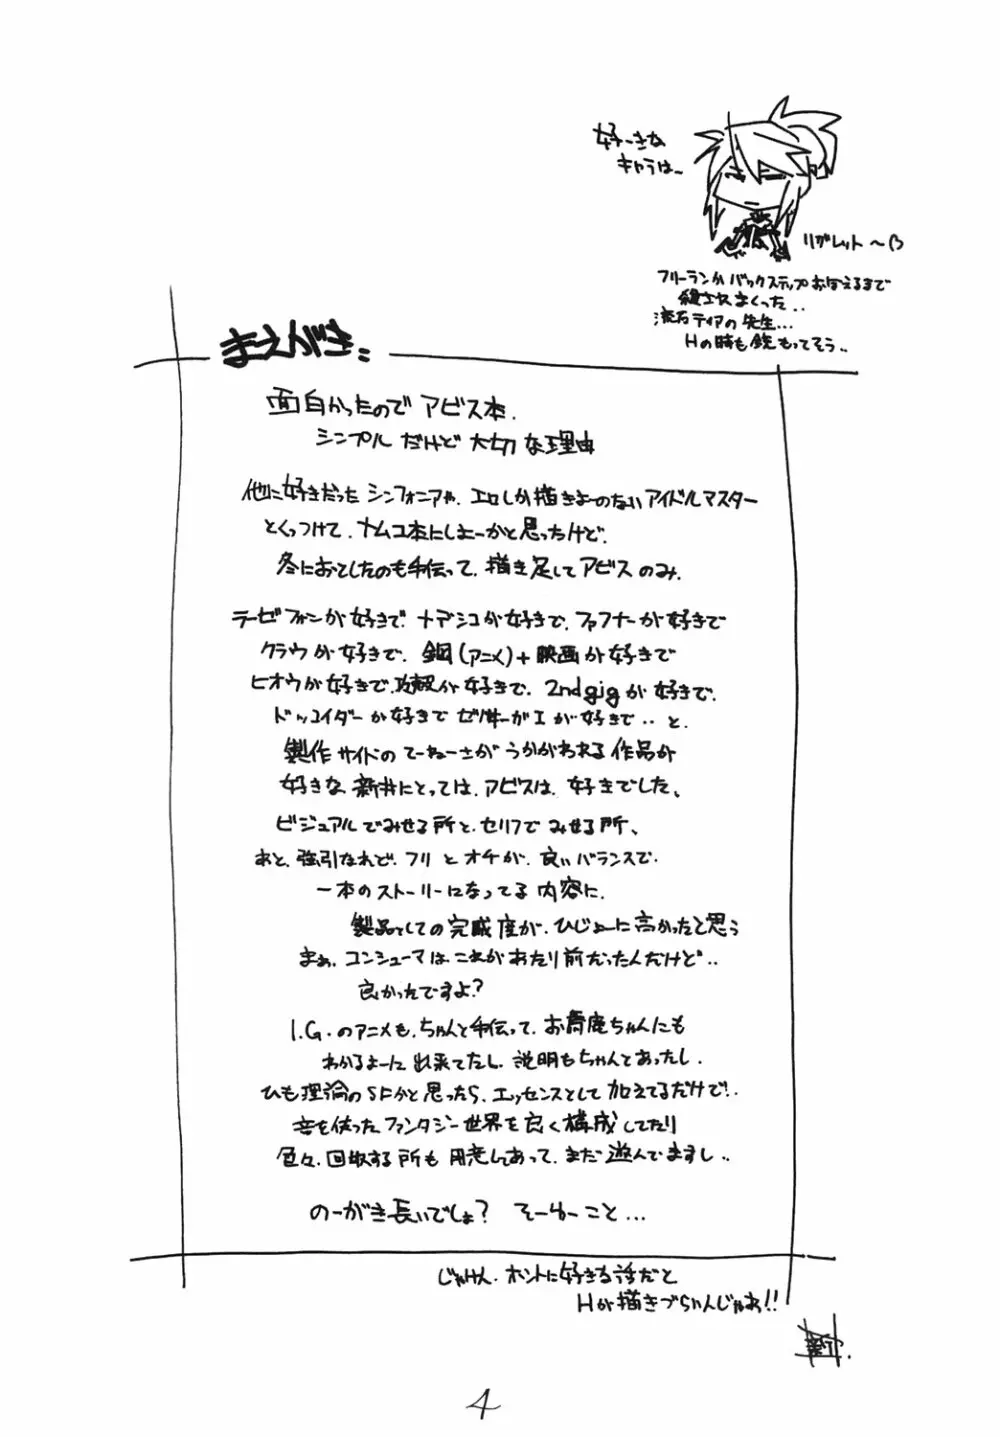 好ーきな
キャラは~
リグレット~
フリーランか バックステップ おぼえるまで
まくった‥
流石ティアの先生…
Hの時も銃もってそう‥
まえがき:
面白かったので アビス本.
シンプル だけど 大切な理由
他に好きだった シンフォニアや、エロしか描きよーのないアイドルマスター
とくっつけて、ナムコ本にしよーかと思ったけど.
冬におとしたのも手伝って、描き足してアビス のみ.
ラーゼフォンが好きで、ナデシコが好きで、ファフナーが好きで
クラウが好きで、鋼(アニメ)+映画が好きで
ヒオウが好きで、攻殻が好きで、2ndgigが好きで、
ドッコイダーが好きで ゼノサーガIが好きで‥と、
製作サイドのてーねーさが うかがわれる作品が
好きな 新井にとっては、アビスは、好きでした、
ビジュアルでみせる所と、セリフでみせる所、
あと、強引なれど、フリとオチが、良いバランスで、
一本のストーリーになってる内容に、
製品としての完成度が、ひじょーに高かったと思う
まぁ、コンシューマは、これがあたり前だったんだけど‥
良かったですよ?
I.G.のアニメも、ちゃんと手伝って、お舞ちゃんにも
わかるよーに 出来てたし、説明もちゃんとあったし、
ひも理論のSFかと思ったら、エッセンスとして 加えてるだけで‥
音を使った ファンタジー世界を良く構成してたり
色々、回収する所も 用意してあって、まだ遊んでますし‥
のーがき長いでしょ? そーゆーこと…
じゃけん、ホントに好きな話だと
Hが描きづらいんじゃあ!!
4